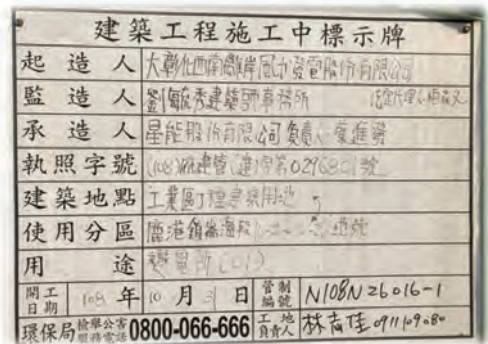 建築工程施工中標示牌
起造人 大彰化西南離岸風力發電股份有限公司
監造人 劉敏秀建築師事務所
承造人 星能股份有限公司 負責人
執照字號 (108)府建管(建)字第0296801號
建築地點 工業區丁種建築用地
使用分區 鹿港鎮崙海段 地號
用途 變電所
開工日期 108年10月31日 管制編號 N108N26016-1
環保局 檢舉公害服務電話 0800-066-666 工地負責人 林 佳 0911109080